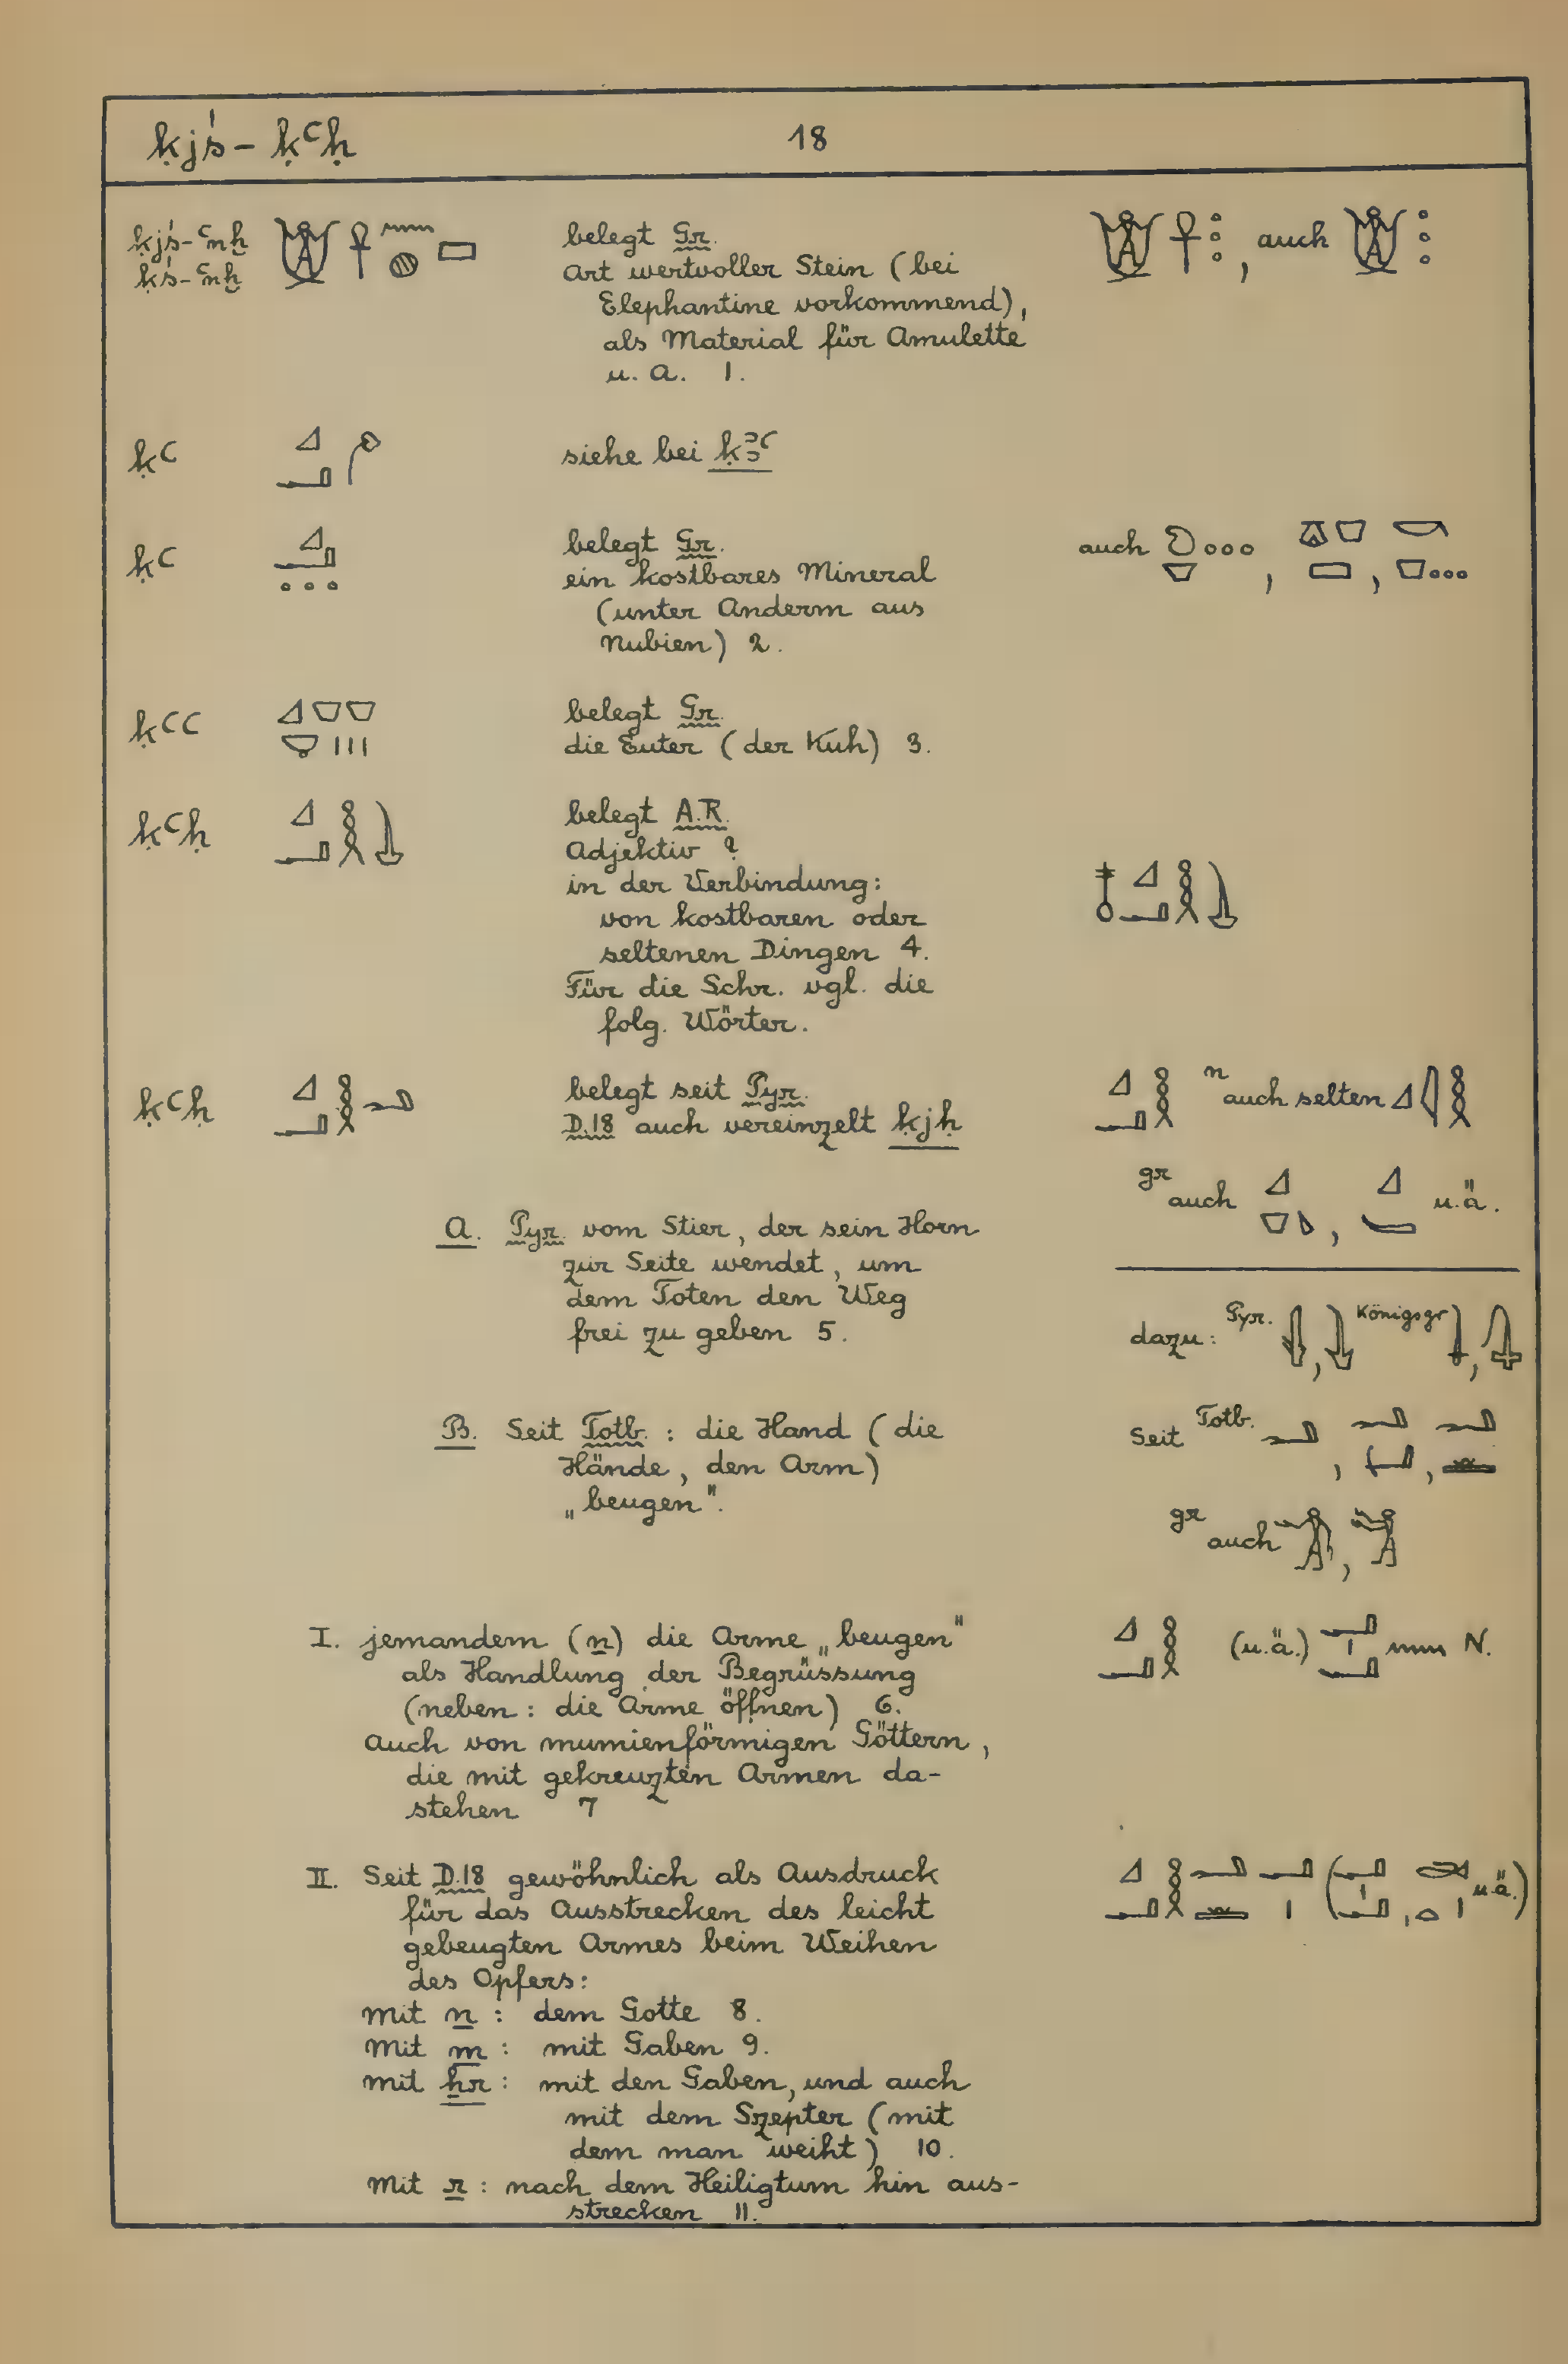 ḳjś - ḳꜥḥ 18
ḳjś-ꜥnḫ belegt Gr.
ḳś-ꜥnḫ Art wertvoller Stein (bei
Elephantine vorkommend), auch
als Material für Amulette
u. a. 1.
ḳꜥ siehe bei ḳꜣꜥ
ḳꜥ belegt Gr. auch
ein kostbares Mineral
(unter Anderm aus
Nubien) 2.
ḳꜥꜥ belegt Gr.
die Euter (der Kuh) 3.
ḳꜥḥ belegt A.R.
Adjektiv ?
in der Verbindung:
von kostbaren oder
seltenen Dingen 4.
Für die Schr. vgl. die
folg. Wörter.
ḳꜥḥ belegt seit Pyr. n auch selten
D.18 auch vereinzelt ḳjḥ
gr auch u.ä.
A. Pyr. vom Stier, der sein Horn
zur Seite wendet, um
dem Toten den Weg
frei zu geben 5.
dazu: Pyr. Königsgr
B. Seit Totb. : die Hand (die
Hände, den Arm)
„beugen".
Seit Totb.
gr auch
I. jemandem (n) die Arme „beugen" (u.ä.) N.
als Handlung der Begrüssung
(neben : die Arme öffnen) 6.
Auch von mumienförmigen Göttern,
die mit gekreuzten Armen da-
stehen 7
II. Seit D.18 gewöhnlich als Ausdruck u.ä.)
für das Ausstrecken des leicht
gebeugten Armes beim Weihen
des Opfers:
mit n : dem Gotte 8.
mit m : mit Gaben 9.
mit ẖr : mit den Gaben, und auch
mit dem Szepter (mit
dem man weiht) 10.
mit r : nach dem Heiligtum hin aus-
strecken 11.